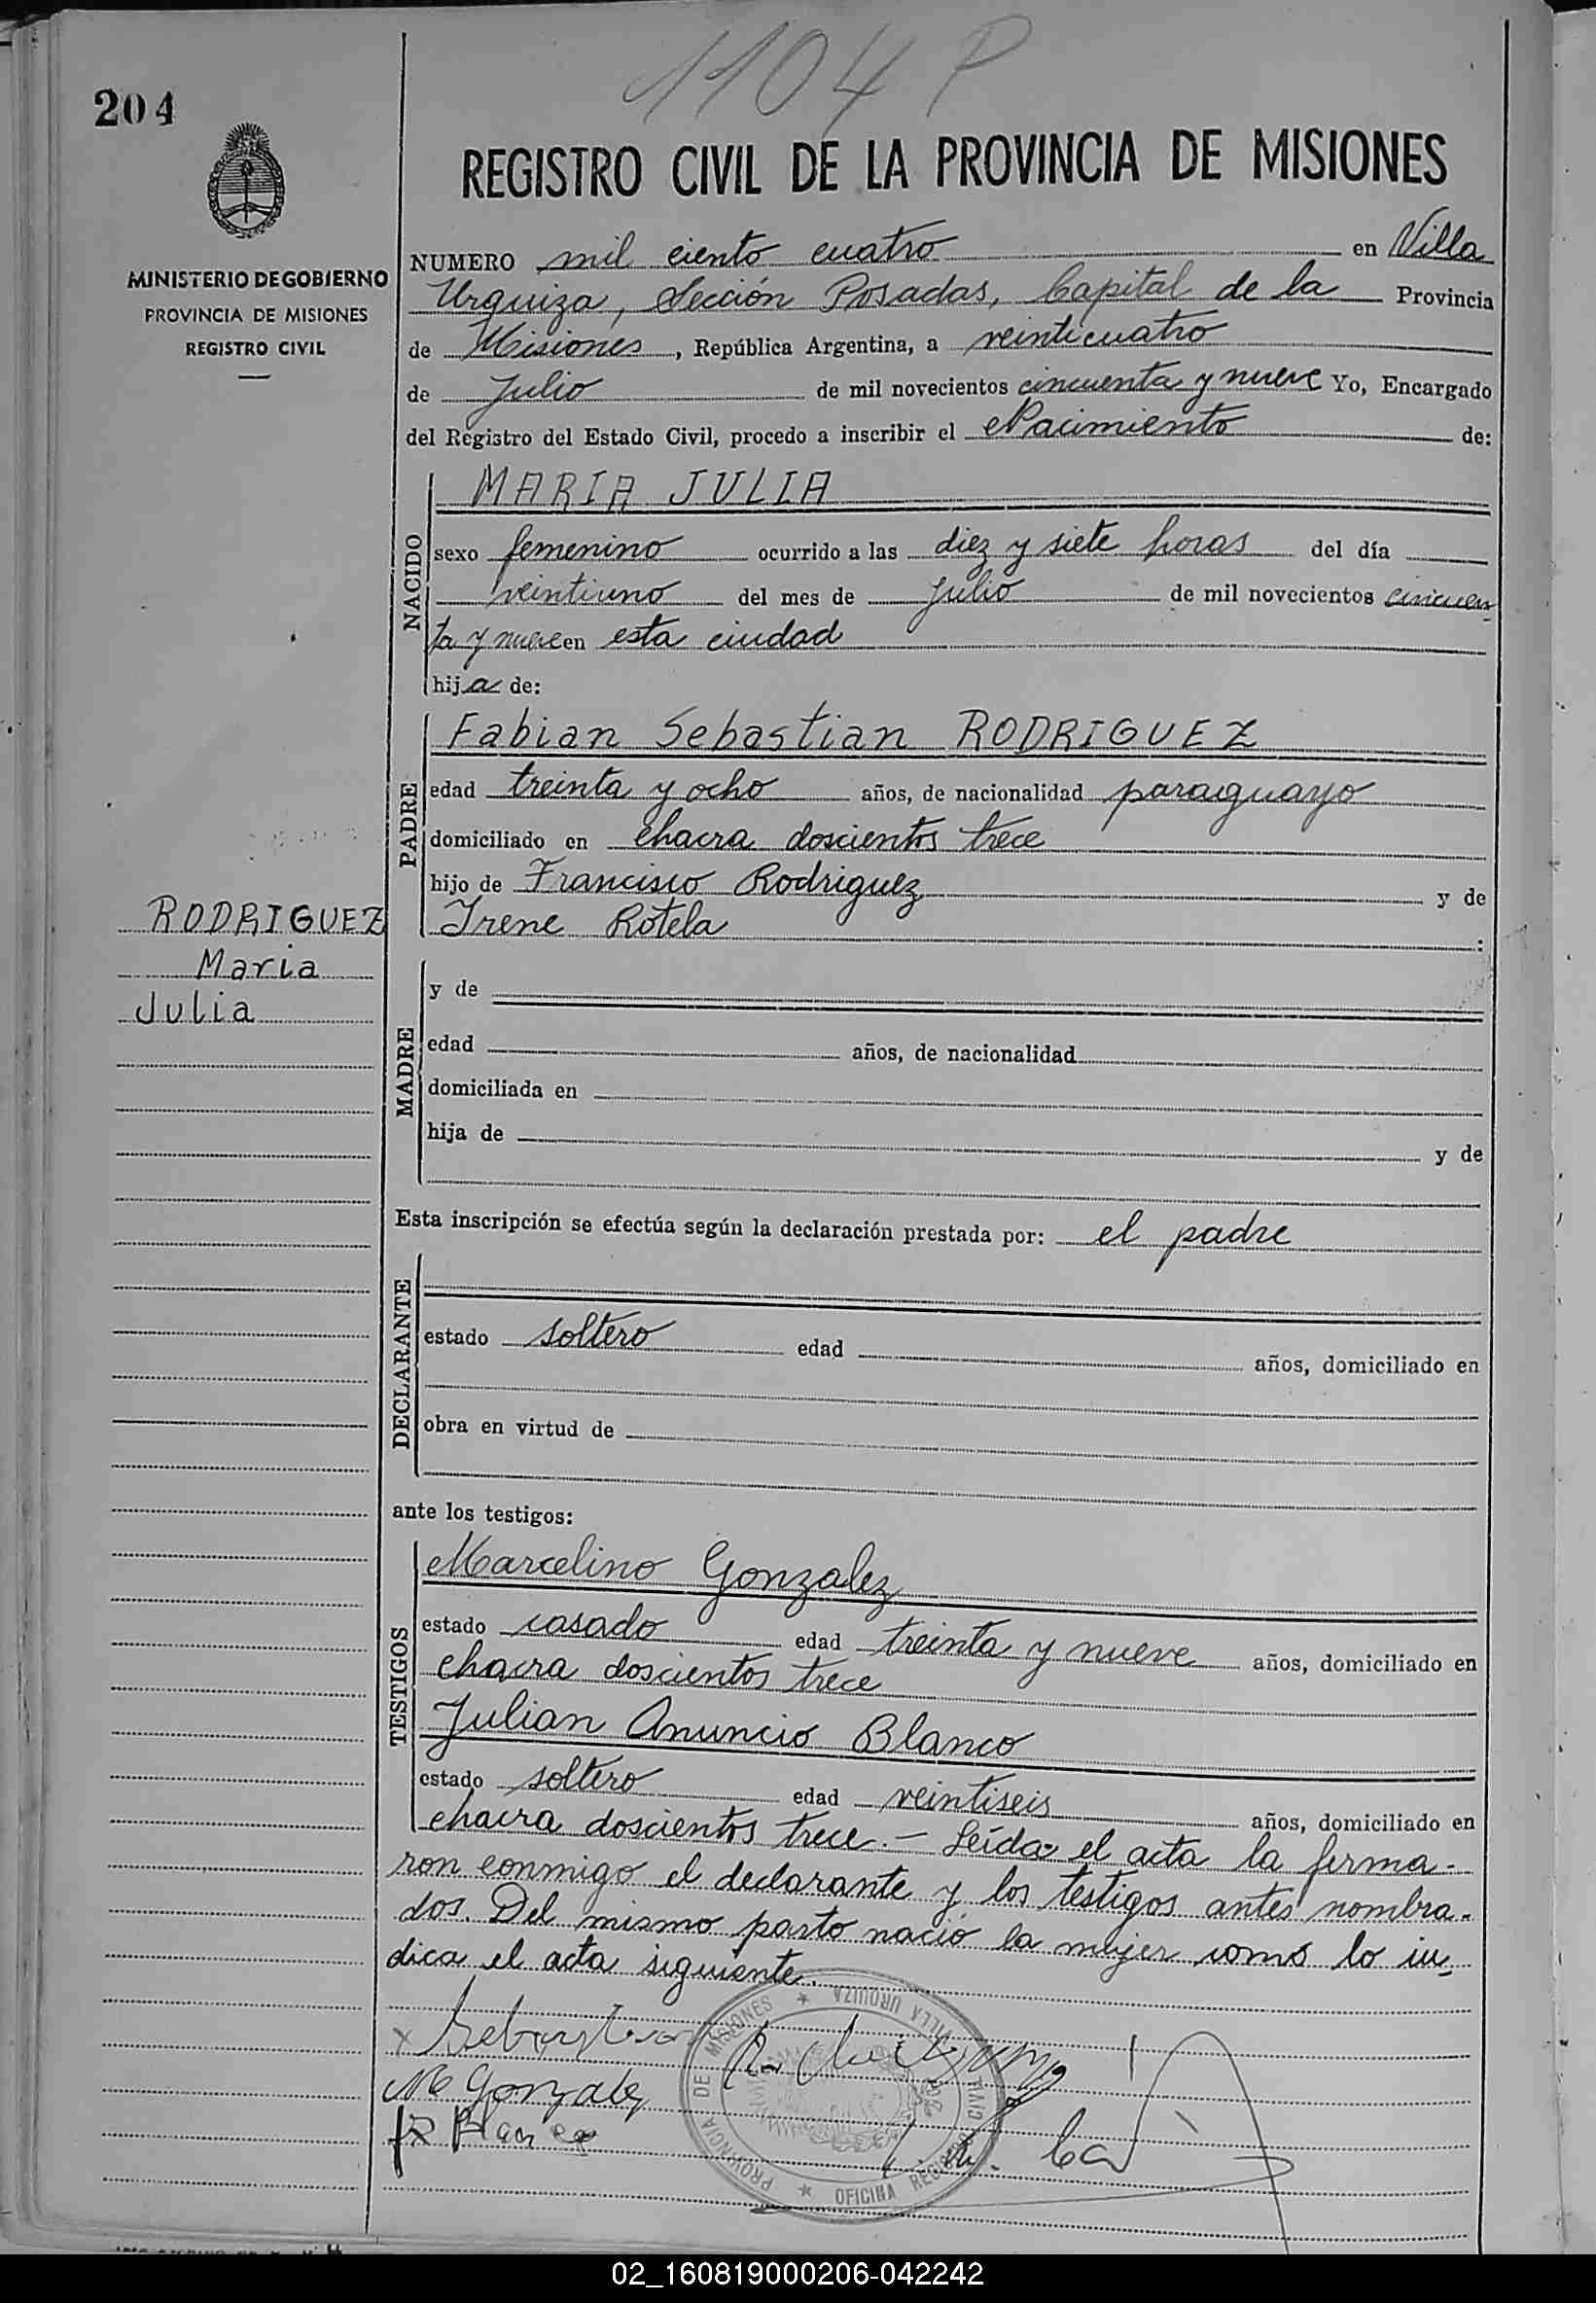 1104 P
204
REGISTRO CIVIL DE LA PROVINCIA DE MISIONES
MINISTERIO DE GOBIERNO
PROVINCIA DE MISIONES
REGISTRO CIVIL
NUMERO mil ciento cuatro en Villa
Urquiza, Sección Posadas, Capital de la Provincia
de Misiones, República Argentina, a veinticuatro
de Julio de mil novecientos cincuenta y nueve Yo, Encargado
del Registro del Estado Civil, procedo a inscribir el Nacimiento de:
NACIDO
MARIA JULIA
sexo femenino ocurrido a las diez y siete horas del día
veintiuno del mes de Julio de mil novecientos cincuen
ta y nueve en esta ciudad
hija de:
PADRE
Fabian Sebastian RODRIGUEZ
edad treinta y ocho años, de nacionalidad paraguayo
domiciliado en chacra doscientos trece
hijo de Francisco Rodriguez y de
Irene Rotela :
RODRIGUEZ
Maria
Julia
MADRE
y de
edad años, de nacionalidad
domiciliada en
hija de y de
Esta inscripción se efectúa según la declaración prestada por: el padre
DECLARANTE
estado soltero edad años, domiciliado en
obra en virtud de
ante los testigos:
TESTIGOS
Marcelino Gonzalez
estado casado edad treinta y nueve años, domiciliado en
chacra doscientos trece
Julian Anuncio Blanco
estado soltero edad veintiseis años, domiciliado en
chacra doscientos trece.- Leída el acta la firma-
ron conmigo el declarante y los testigos antes nombra-
dos. Del mismo parto nació la mujer como lo in-
dica el acta siguiente.
x Sebastian
M Gonzalez
Blanco
PROVINCIA DE MISIONES * VILLA URQUIZA
* OFICINA REGISTRO CIVIL
02_160819000206-042242